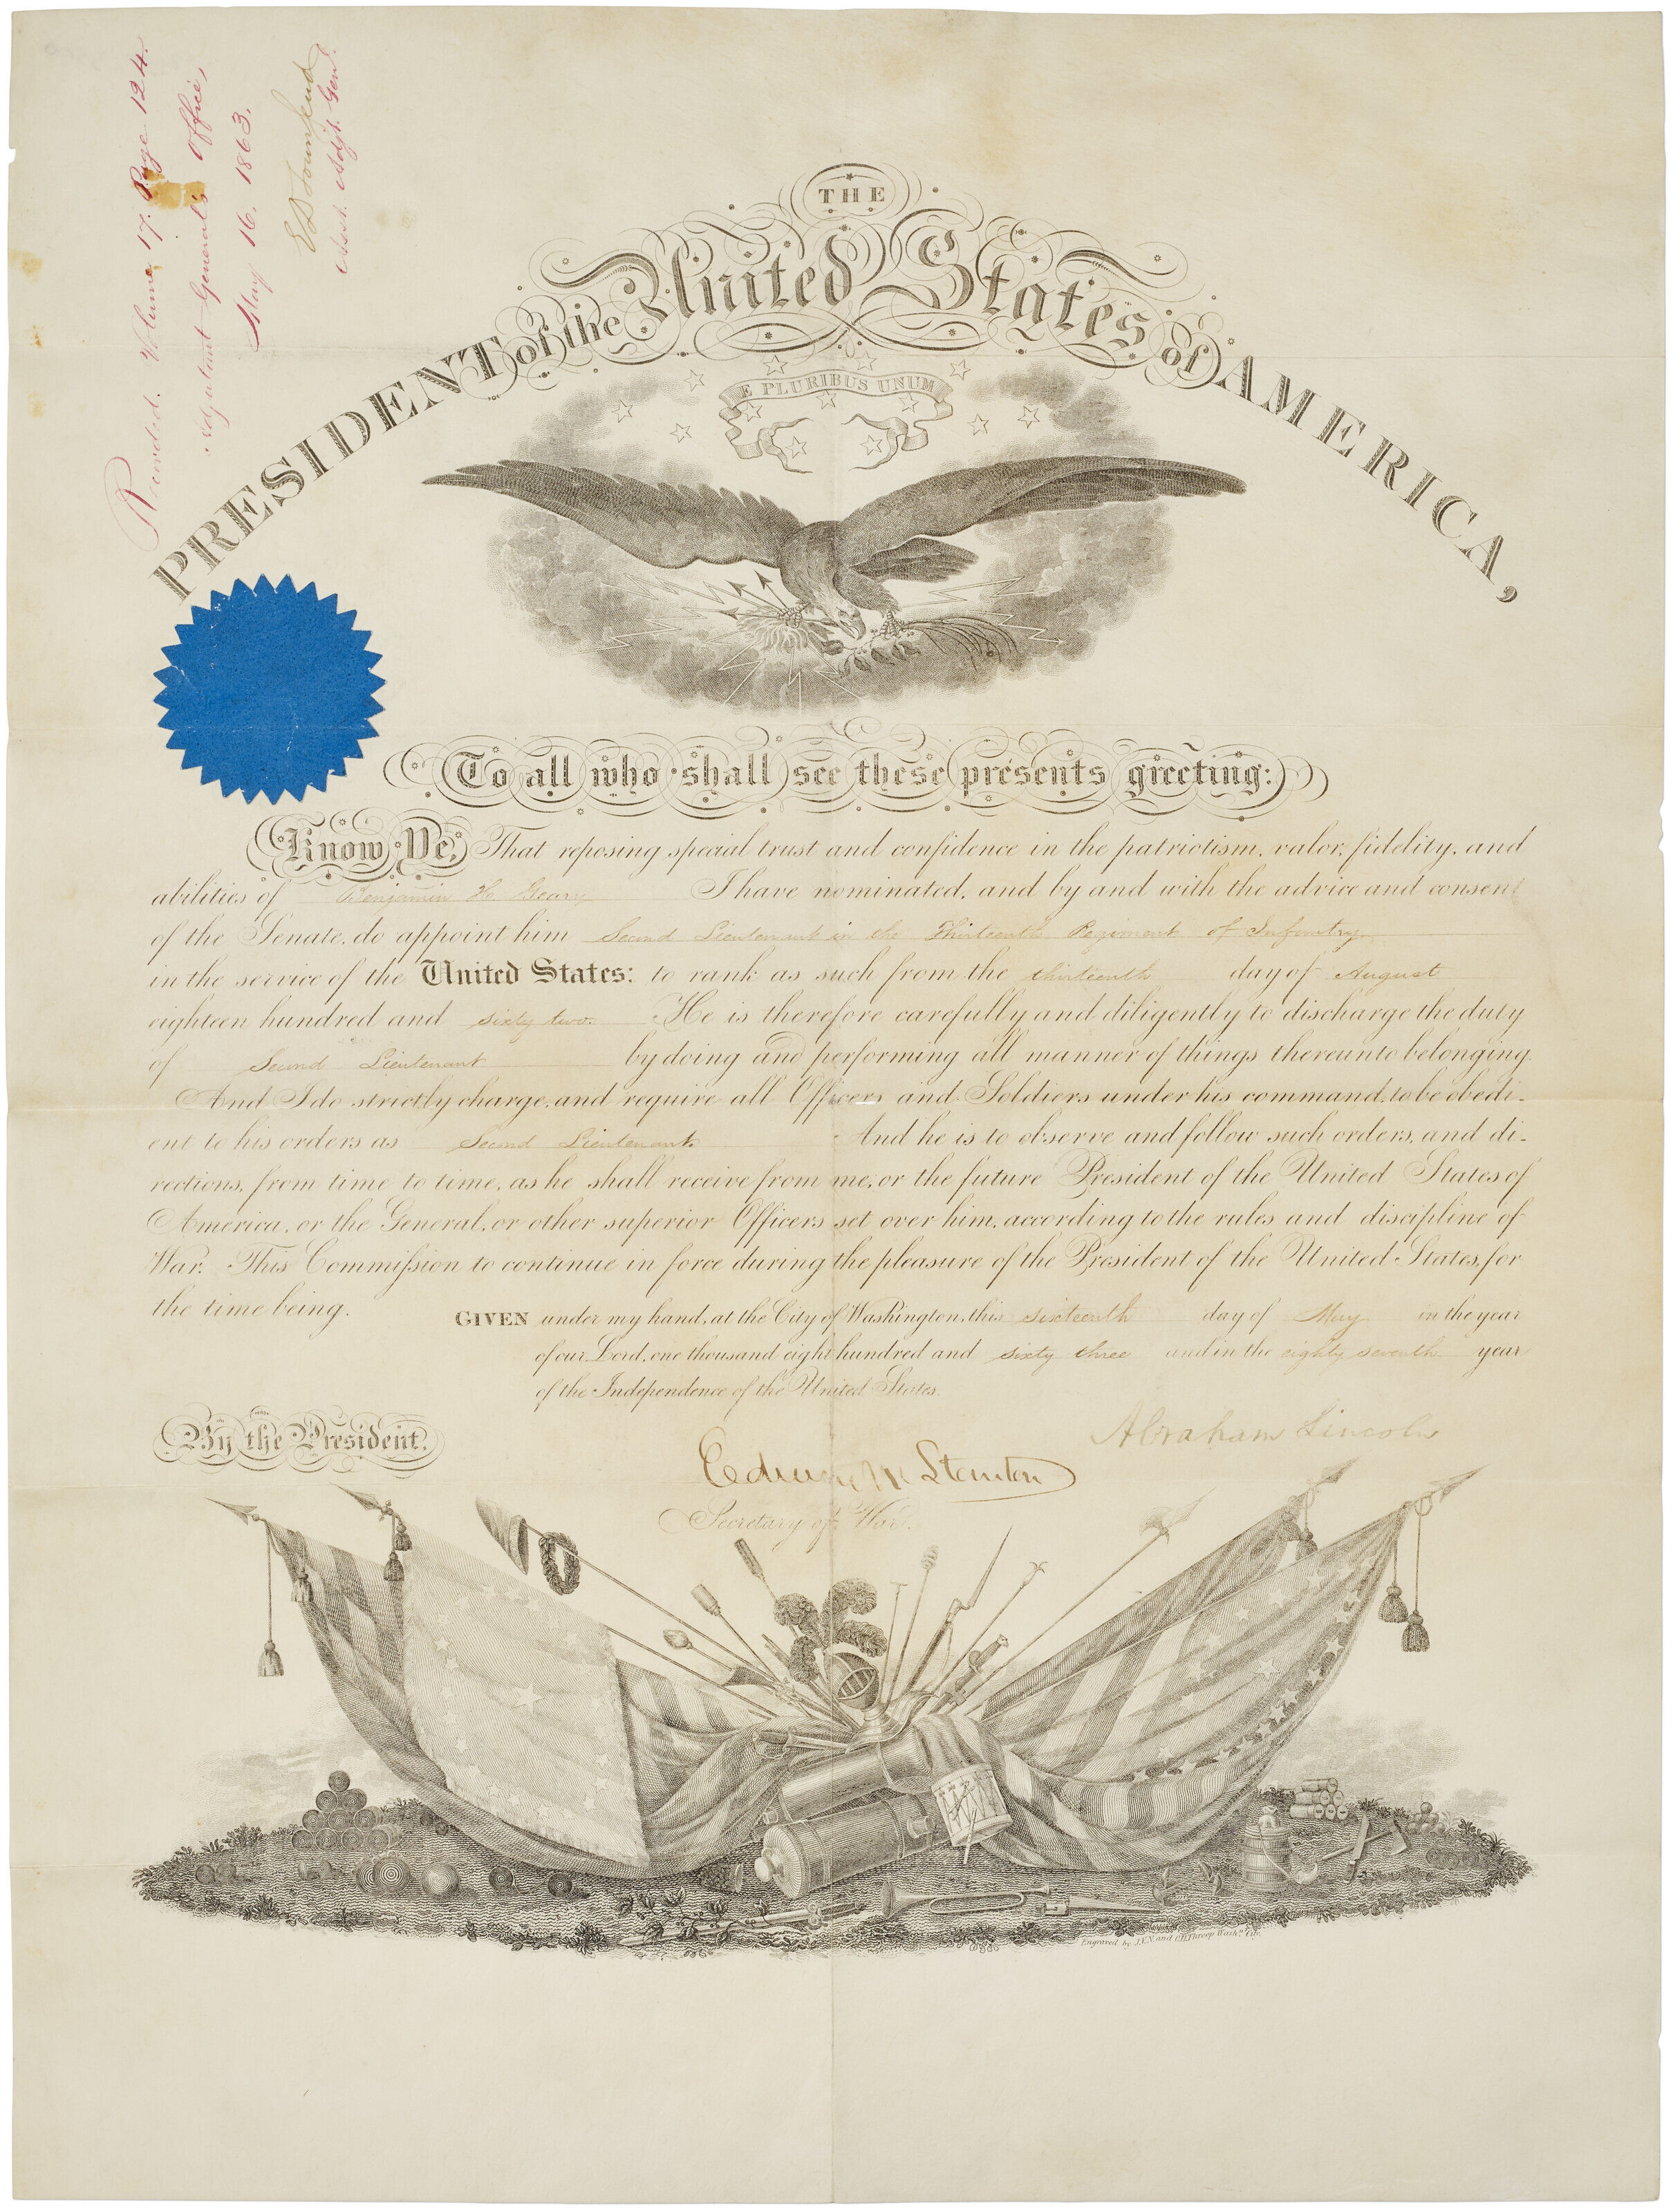 Recorded. Volume 17. Page 124.
Adjutant General's Office,
May 16. 1863.
E D Townsend
Asst. Adjt. Genl.
THE
PRESIDENT of the United States of AMERICA,
E PLURIBUS UNUM
To all who shall see these presents greeting:
Know Ye, That reposing special trust and confidence in the patriotism, valor, fidelity, and
abilities of Benjamin H. Geary I have nominated, and by and with the advice and consent
of the Senate, do appoint him Second Lieutenant in the Thirteenth Regiment of Infantry
in the service of the United States: to rank as such from the thirteenth day of August
eighteen hundred and sixty two. He is therefore carefully and diligently to discharge the duty
of Second Lieutenant by doing and performing all manner of things thereunto belonging.
And I do strictly charge, and require all Officers and Soldiers under his command, to be obedi-
ent to his orders as Second Lieutenant. And he is to observe and follow such orders, and di-
rections, from time to time, as he shall receive from me, or the future President of the United States of
America, or the General, or other superior Officers set over him, according to the rules and discipline of
War. This Commission to continue in force during the pleasure of the President of the United States, for
the time being.
GIVEN under my hand, at the City of Washington, this sixteenth day of May in the year
of our Lord, one thousand eight hundred and sixty three and in the eighty seventh year
of the Independence of the United States.
By the President.
Abraham Lincoln
Edwin M Stanton
Secretary of War.
Engraved by J.V.N. and O.H. Throop Wash.n City.